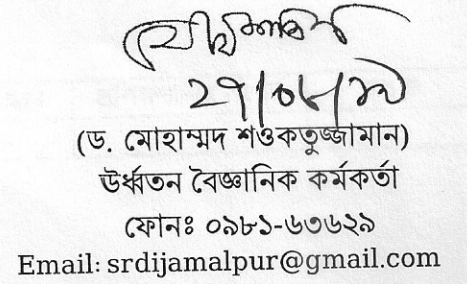 ২৭/০৮/১৮
(ড. মোহাম্মদ শওকতুজ্জামান)
উর্ধ্বতন বৈজ্ঞানিক কর্মকর্তা
ফোনঃ ০৯৮১-৬৩৬২৯
Email: srdijamalpur@gmail.com